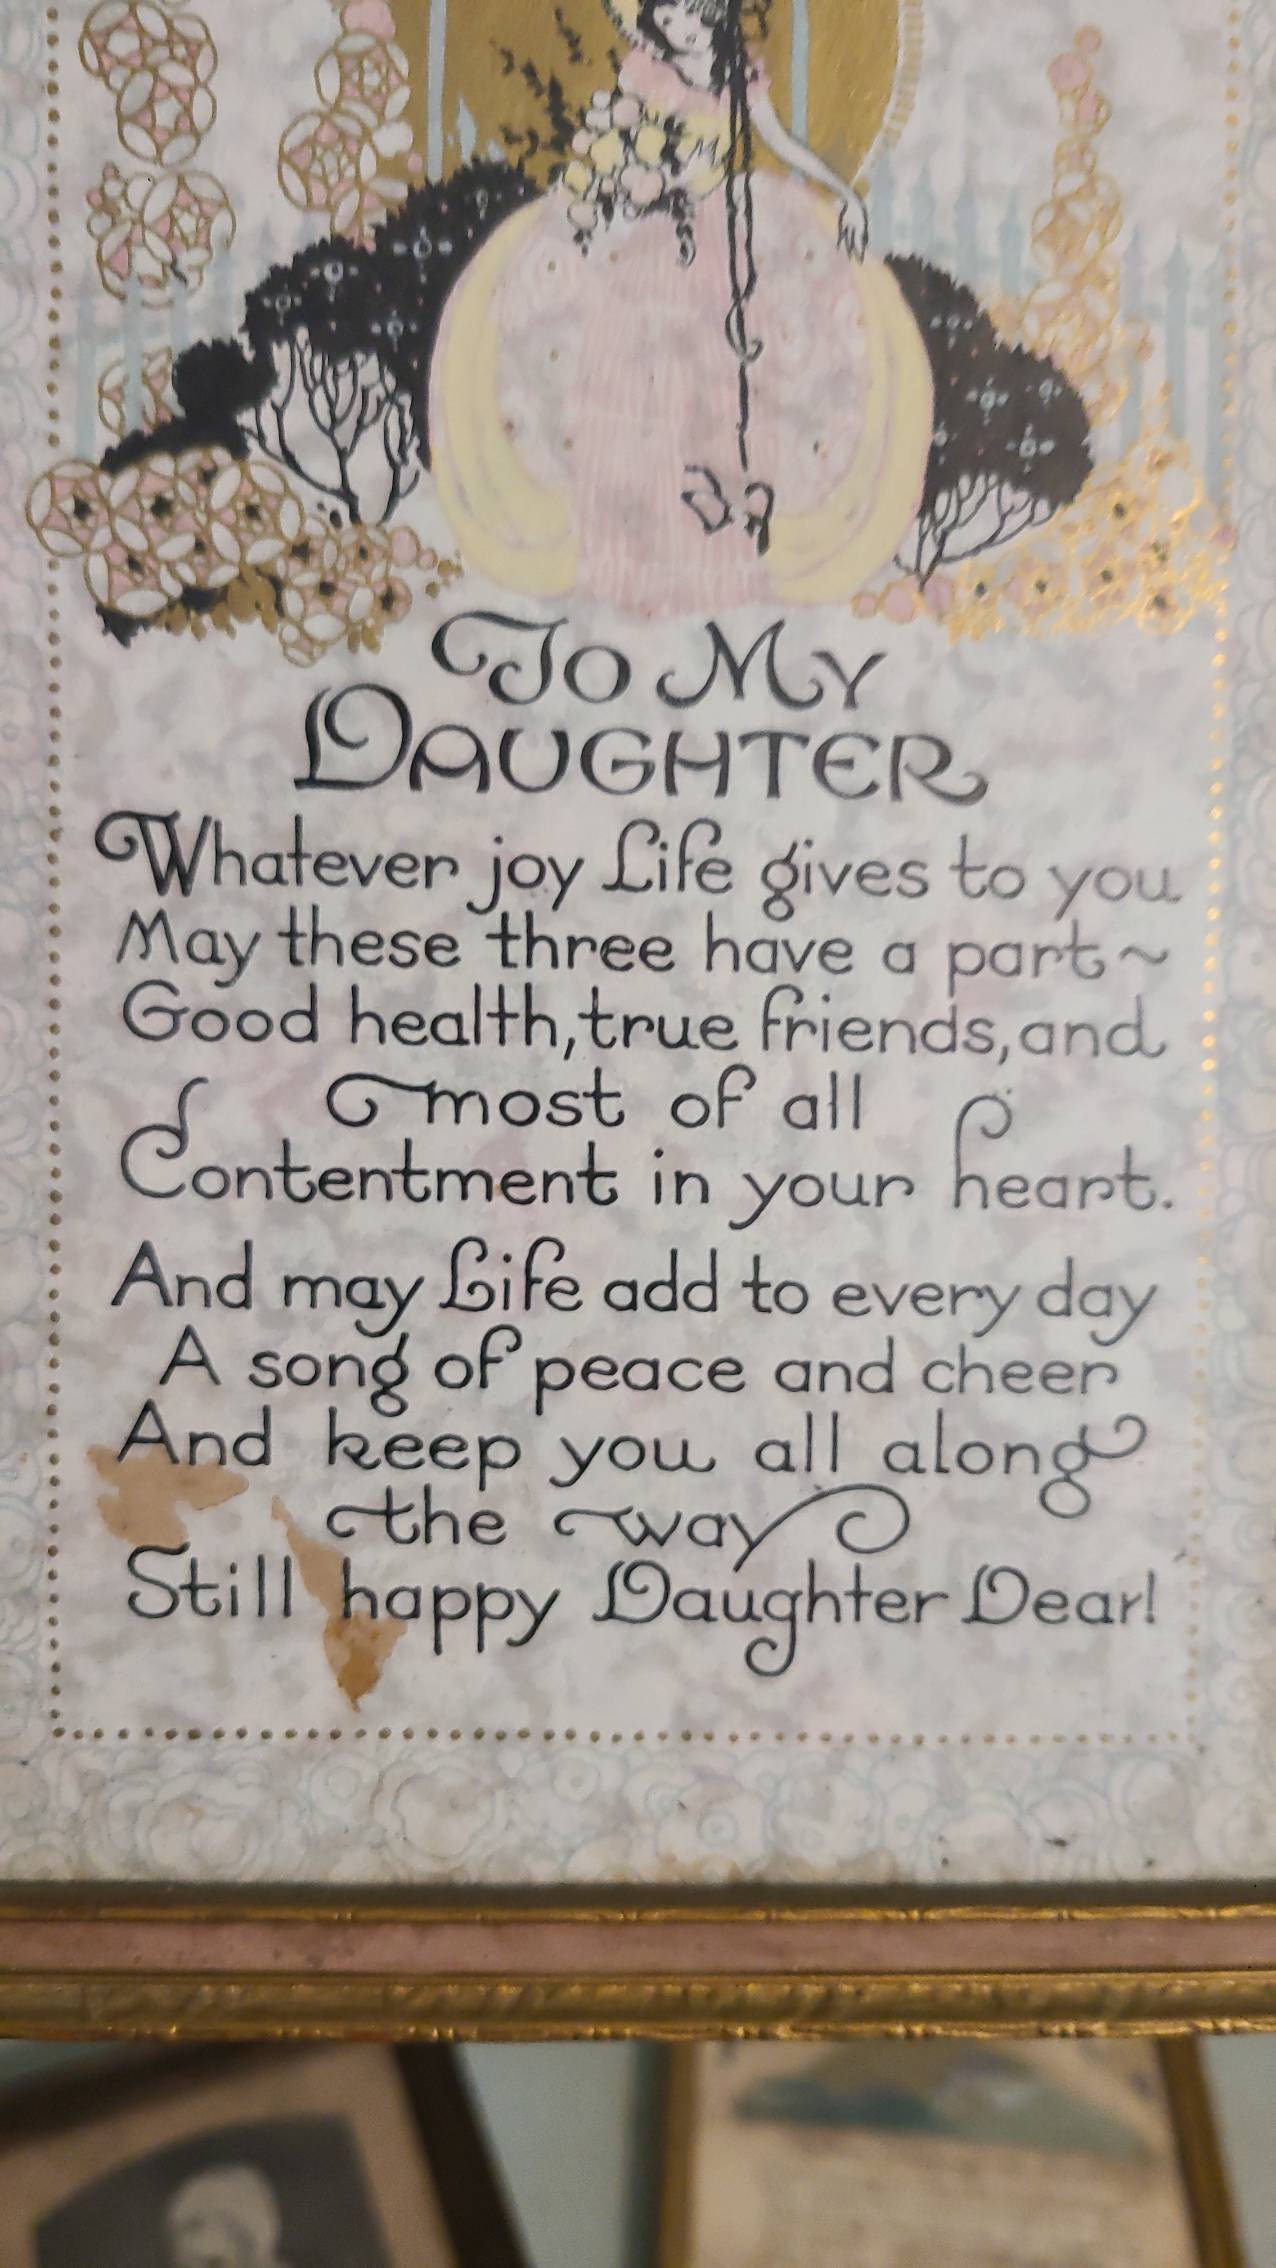 To My
Daughter
Whatever joy Life gives to you
May these three have a part~
Good health, true friends, and
most of all
Contentment in your heart.
And may Life add to every day
A song of peace and cheer
And keep you all along
the way
Still happy Daughter Dear!